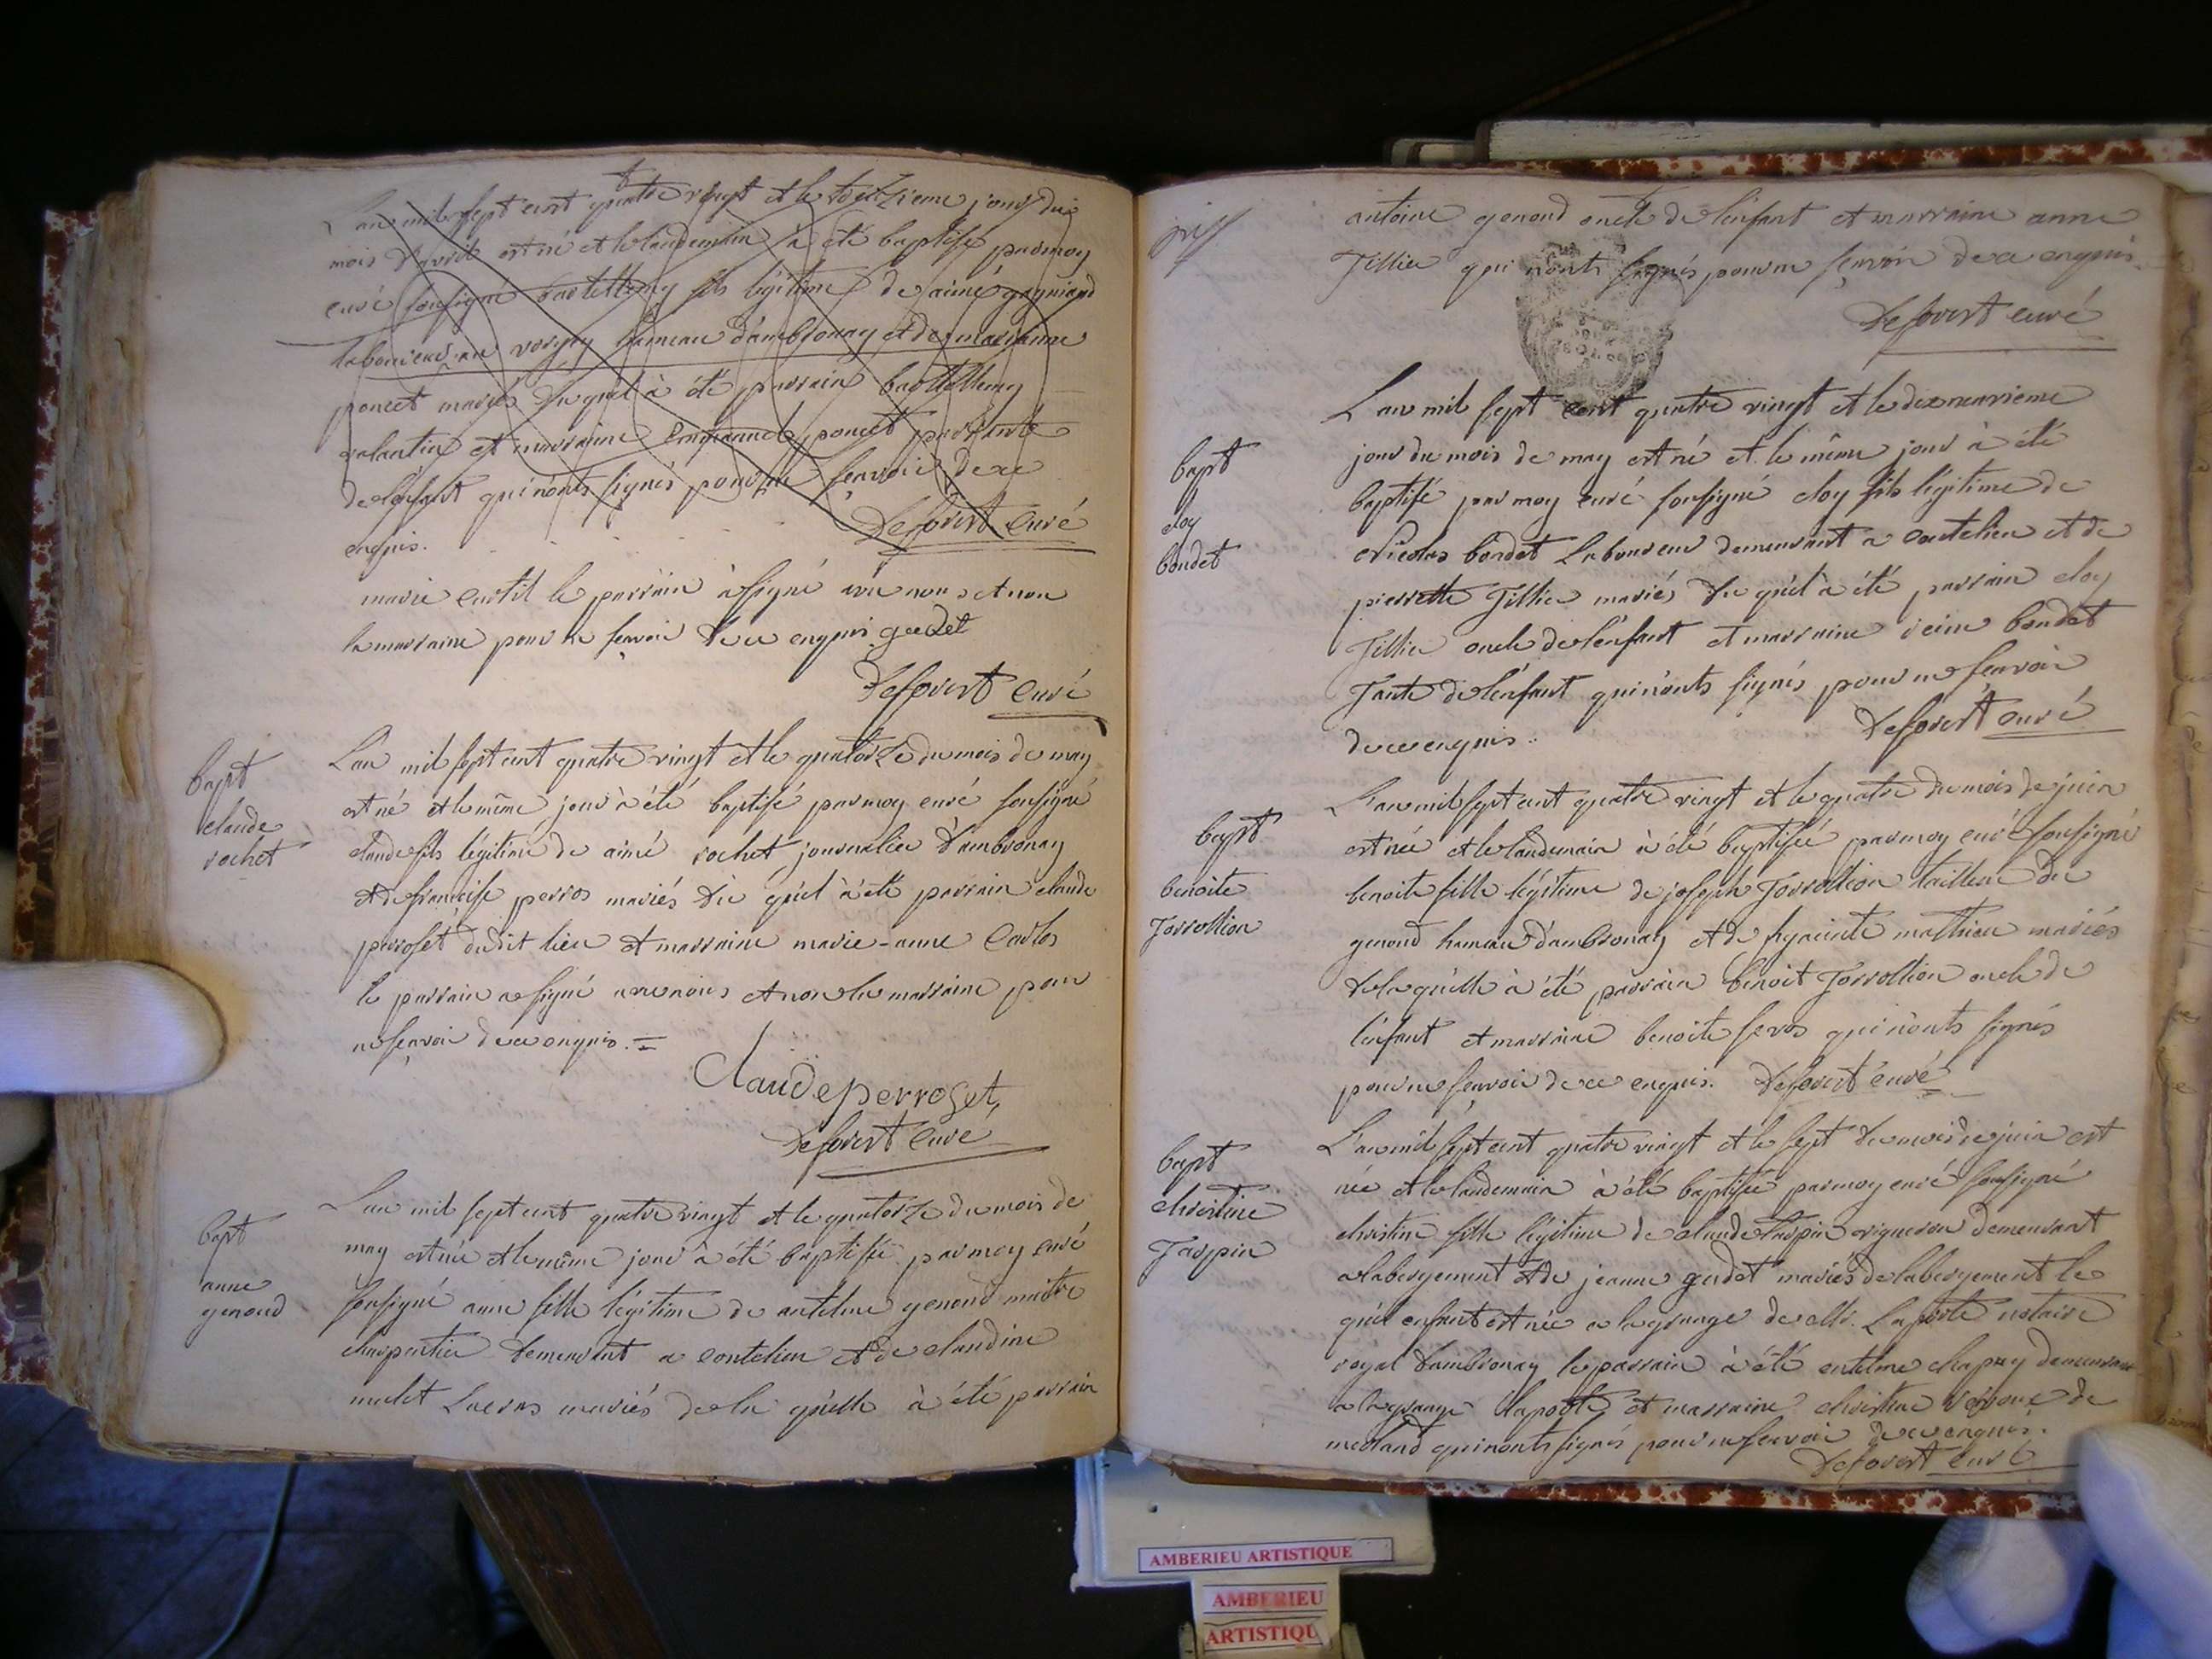 L'an mil sept cent quatre vingt et le treizieme jour du
mois d'avril est né et le landemain à été baptisé par moy
curé sousigné bartellemy fils légitime de aimé gagniard
laboureur au vorgey hameau d'ambronay et de marianne
poncet mariés du quel à été parrain bartellemy
valantin et marraine emmanuel poncet parrante
de l'enfant qui n'onts signés pour ne sçavoir de ce
enquis. Deforest curé
marie curtil le parrain à signé avec nous et non
la marraine pour ne sçavoir de ce enquis. gudet
Deforest curé
bapt
claude
rochet
L'an mil sept cent quatre vingt et le quatorze du mois de may
est né et le même jour à été baptisé par moy curé sousigné
claude fils légitime de aimé rochet journalier d'ambronay
et de françoise perros mariés du quel à été parrain claude
perroset dudit lieu et marraine marie-anne Carlos
le parrain a signé avec nous et non la marraine pour
ne sçavoir de ce enquis. =
Claude perroset
Deforest curé
bapt
anne
genoud
L'an mil sept cent quatre vingt et le quatorze du mois de
may est née et le même jour à été baptisée par moy curé
sousigné anne fille légitime de antelme genoud maitre
charpentier demeurant a coutelieu et de claudine
mulet Lucras mariés de la quelle à été parrain
antoine genoud oncle de l'enfant et marraine anne
Tillier qui n'onts signés pour ne sçavoir de ce enquis.
Deforest curé
bapt
eloy
bondet
L'an mil sept cent quatre vingt et le dixneuvieme
jour du mois de may est né et le même jour à été
baptisé par moy curé sousigné eloy fils légitime de
Nicolas bondet Laboureur demeurant a coutelieu et de
pierrette Tillier mariés du quel à été parrain eloy
Tillier oncle de l'enfant et marraine reine bondet
Tante de l'enfant qui n'onts signés pour ne sçavoir
de ce enquis. Deforest curé
bapt
benoite
Jorrollion
L'an mil sept cent quatre vingt et le quatre du mois de juin
est née et le landemain à été baptisée par moy curé sousigné
benoite fille légitime de joseph Jorrollion tailleur du
genoud hameau d'ambronay et de hyacinte mathieu mariés
de la quelle à été parrain benoit Jorrollion oncle de
l'enfant et marraine benoite seros qui n'onts signés
pour ne sçavoir de ce enquis. Deforest curé
bapt
christine
Jarpin
L'an mil sept cent quatre vingt et le sept du mois de juin est
née et le landemain à été baptisée par moy curé sousigné
christine fille légitime de claude Jarpin vigneron demeurant
a labergement et de jeanne gudet mariés de labergement le
quel enfant est née a la grange de Mr. Laporte notaire
royal d'ambronay le parrain à été antelme chapuy demeurant
a la grange laporte et marraine christine de
merland qui n'onts signés pour ne sçavoir de ce enquis.
Deforest curé
AMBERIEU ARTISTIQUE
AMBERIEU
ARTISTIQU